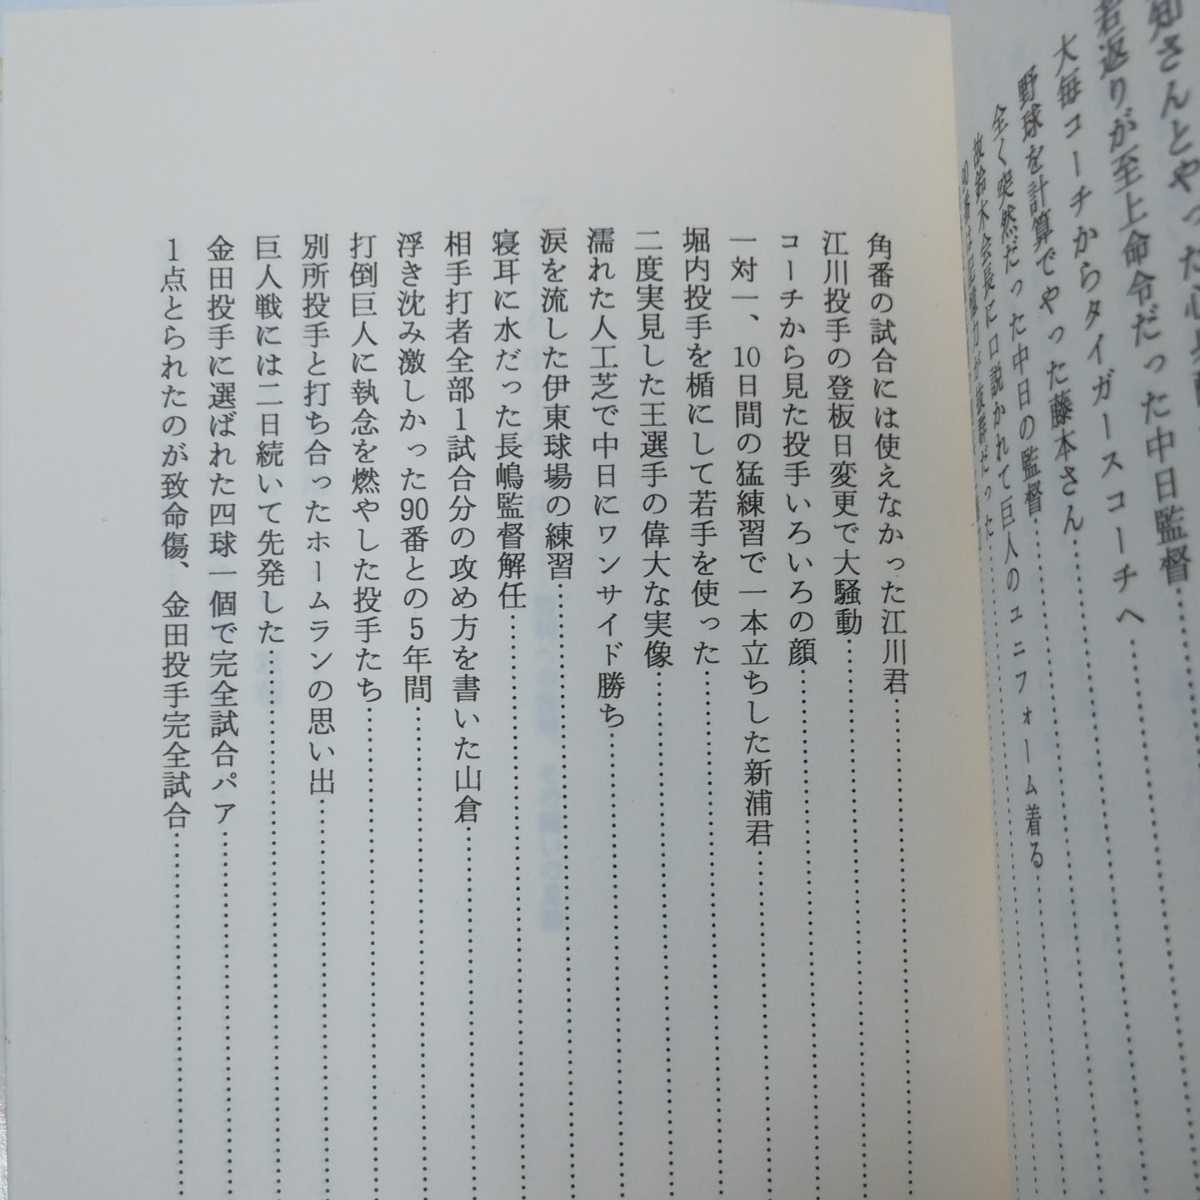 知さんとやった心
若返りが至上命令だった中日監督
大毎コーチからタイガースコーチへ
野球を計算でやった藤本さん
全く突然だった中日の監督
故鈴木会長に口説かれて巨人のユニフォーム着る
角番の試合には使えなかった江川君
江川投手の登板日変更で大騒動
コーチから見た投手いろいろの顔
一対一、10日間の猛練習で一本立ちした新浦君
堀内投手を楯にして若手を使った
二度実見した王選手の偉大な実像
濡れた人工芝で中日にワンサイド勝ち
涙を流した伊東球場の練習
寝耳に水だった長嶋監督解任
相手打者全部1試合分の攻め方を書いた山倉
浮き沈み激しかった90番との5年間
打倒巨人に執念を燃やした投手たち
別所投手と打ち合ったホームランの思い出
巨人戦には二日続いて先発した
金田投手に選ばれた四球一個で完全試合パア
1点とられたのが致命傷、金田投手完全試合